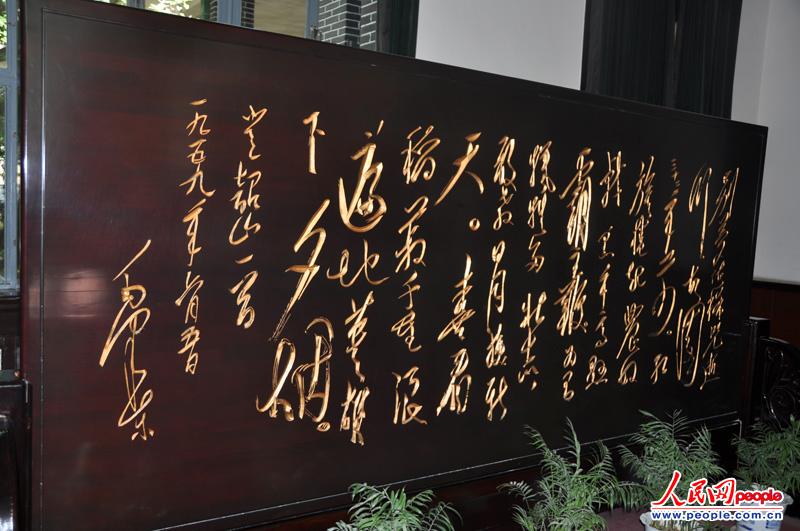 别梦依稀咒逝
川故园
三十二年前红
旗卷起农奴
戟黑手高悬
霸主鞭为有
牺牲多壮志
敢教日月换新
天。喜看
稻菽千重浪
遍地英雄
下夕烟。
登韶山一首
一九五九年六月
毛泽东
人民网people
www.people.com.cn